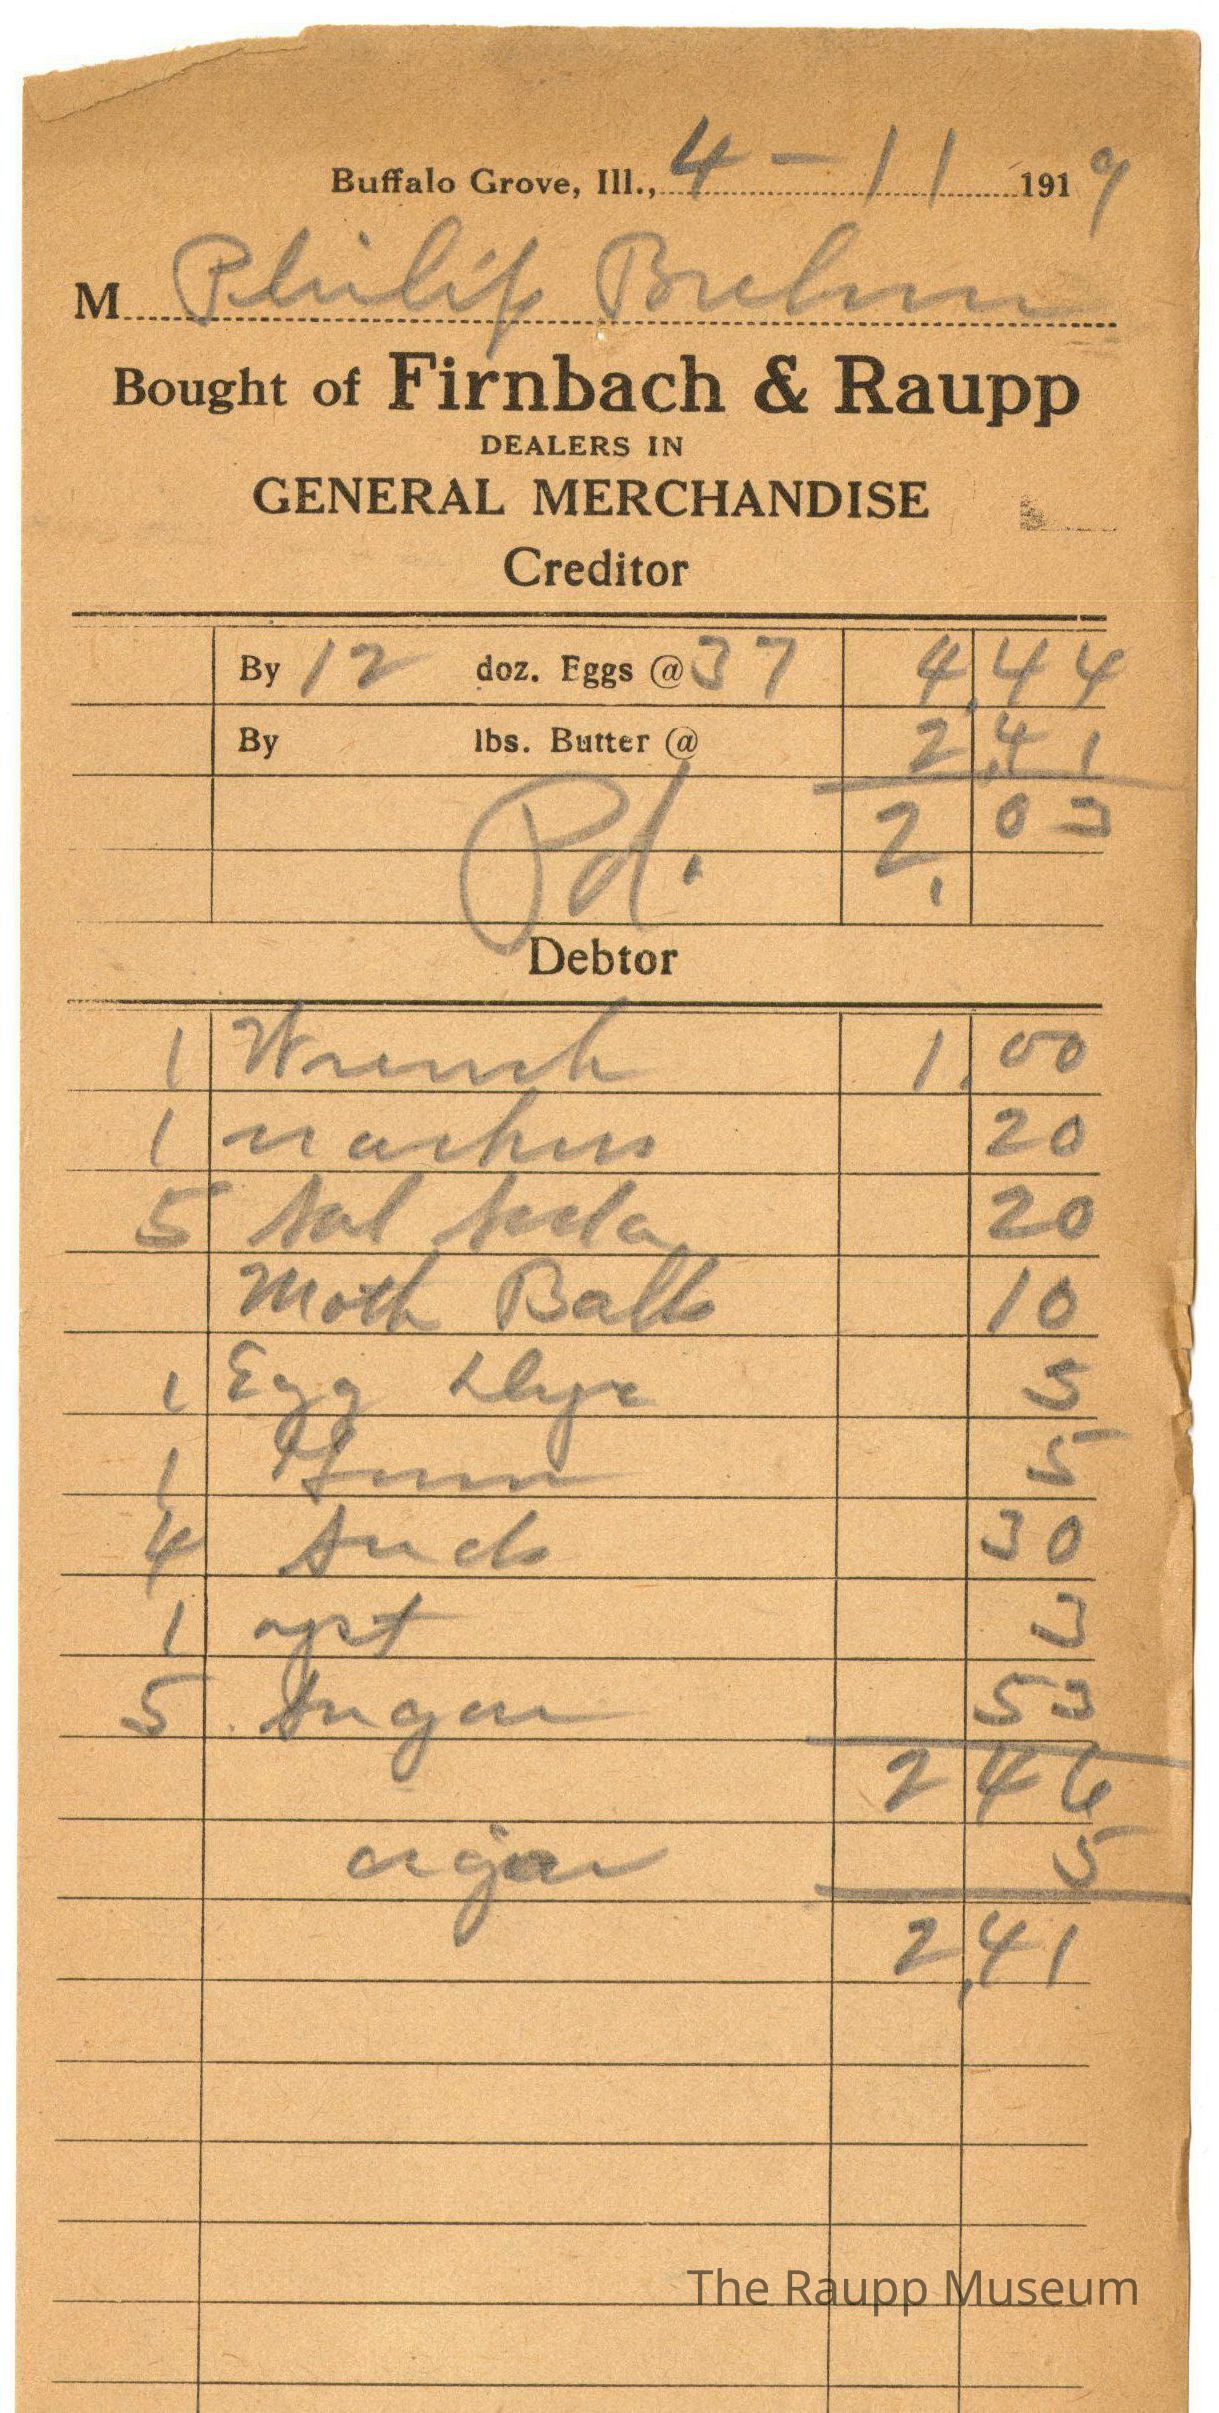 Buffalo Grove, Ill., 4 - 11 1919
M Philip Brehm
Bought of Firnbach & Raupp
DEALERS IN
GENERAL MERCHANDISE
Creditor
By 12 doz. Eggs @ 37 4.44
By lbs. Butter @ 2.41
2.03
Pd.
Debtor
1 Wrench 1.00
1 20
5 Sal Soda 20
Moth Balls 10
1 Egg Dye 5
1 5
4 30
1 3
5 Sugar 53
2 46
cigar 5
2.41
The Raupp Museum